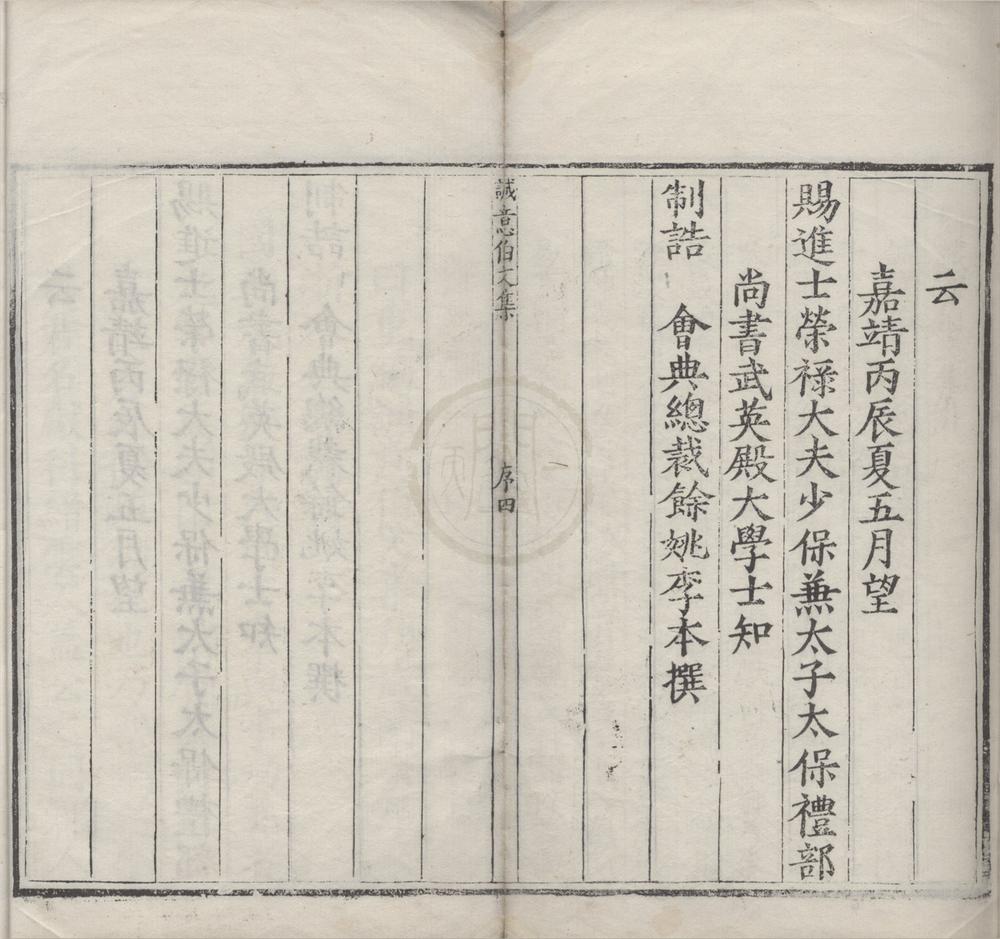 云
嘉靖丙辰夏五月望
賜進士榮祿大夫少保兼太子太保禮部
尚書武英殿大學士知
制誥　會典總裁餘姚李本撰
誠意伯文集
序四